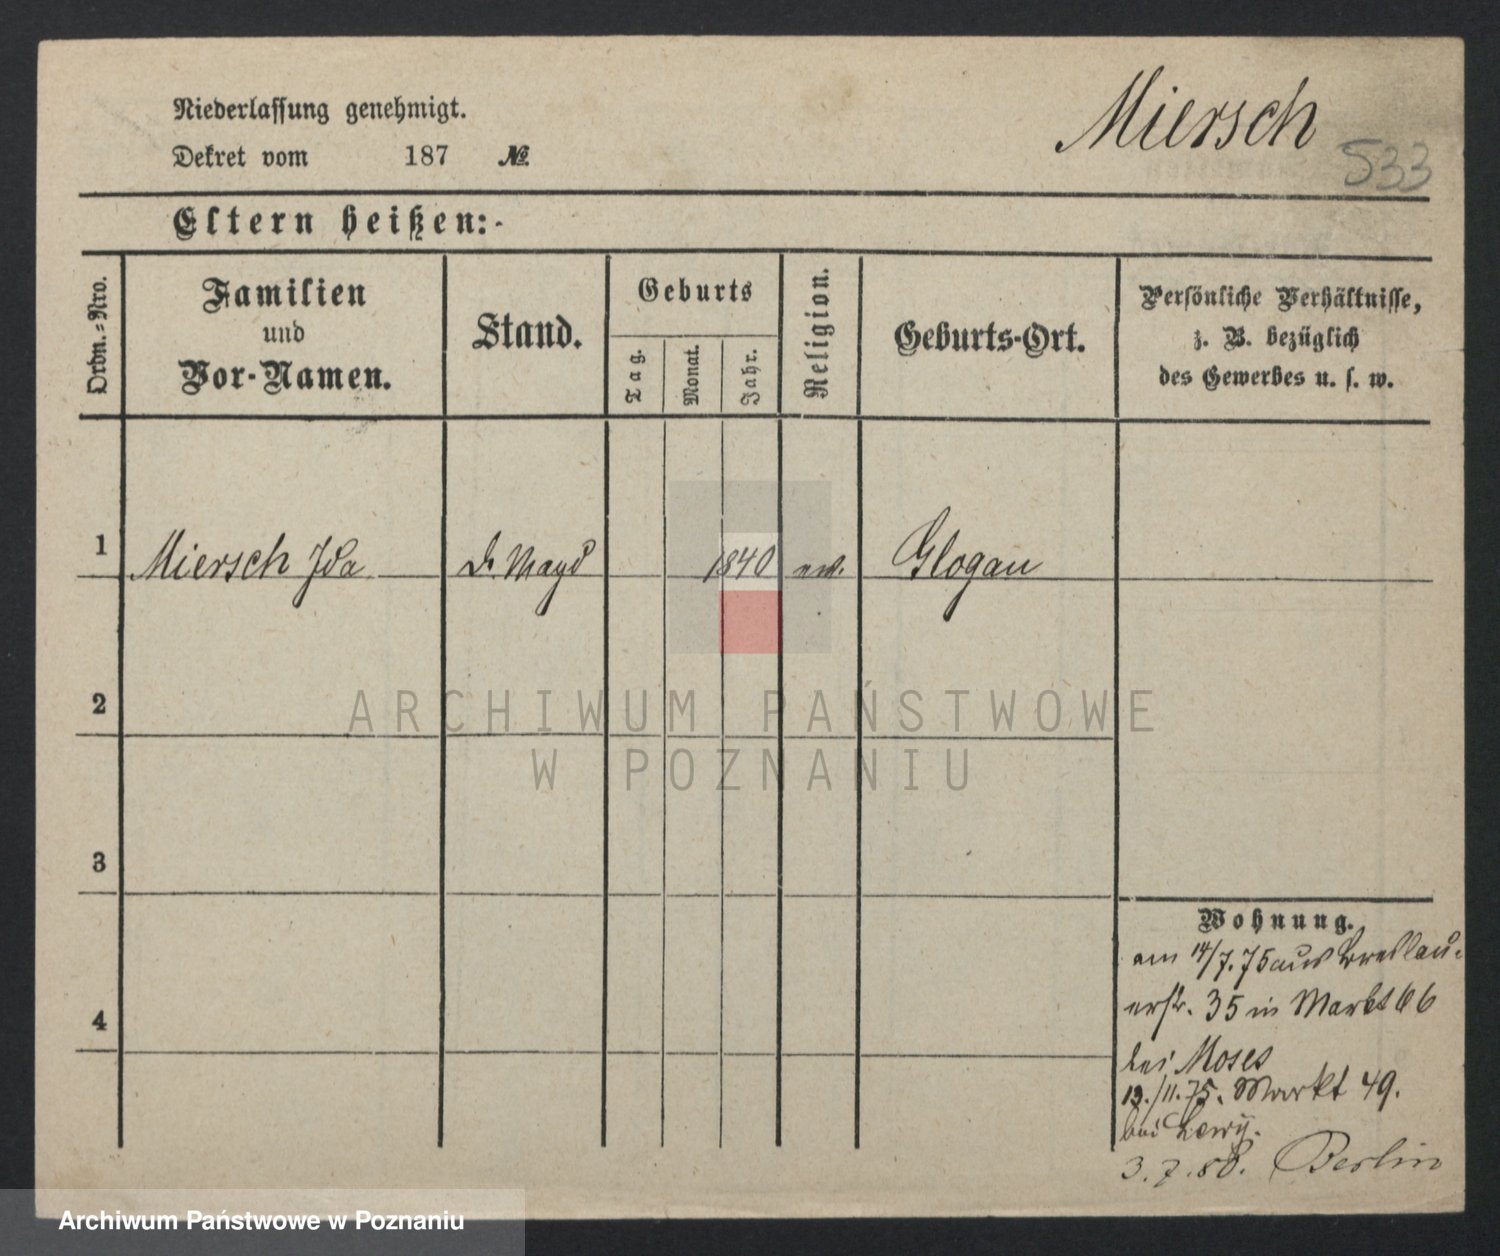 Niederlassung genehmigt.
Dekret vom 187 №
Miersch
533
Eltern heißen:-
Ordn.=Nro.
Familien
und
Vor-Namen.
Stand.
Geburts
Tag.
Monat.
Jahr.
Religion.
Geburts-Ort.
Persönliche Verhältnisse,
z. B. bezüglich
des Gewerbes u. s. w.
1 Miersch Ida d. Magd 1840 ev. Glogau
2
ARCHIWUM PAŃSTWOWE
W POZNANIU
3
Wohnung.
am 14/7.75 aus Breslau-
erstr. 35 in Markt 66
4
bei Moses
19./11.75. Markt 49.
bei Lewy.
3.7.80. Berlin
Archiwum Państwowe w Poznaniu